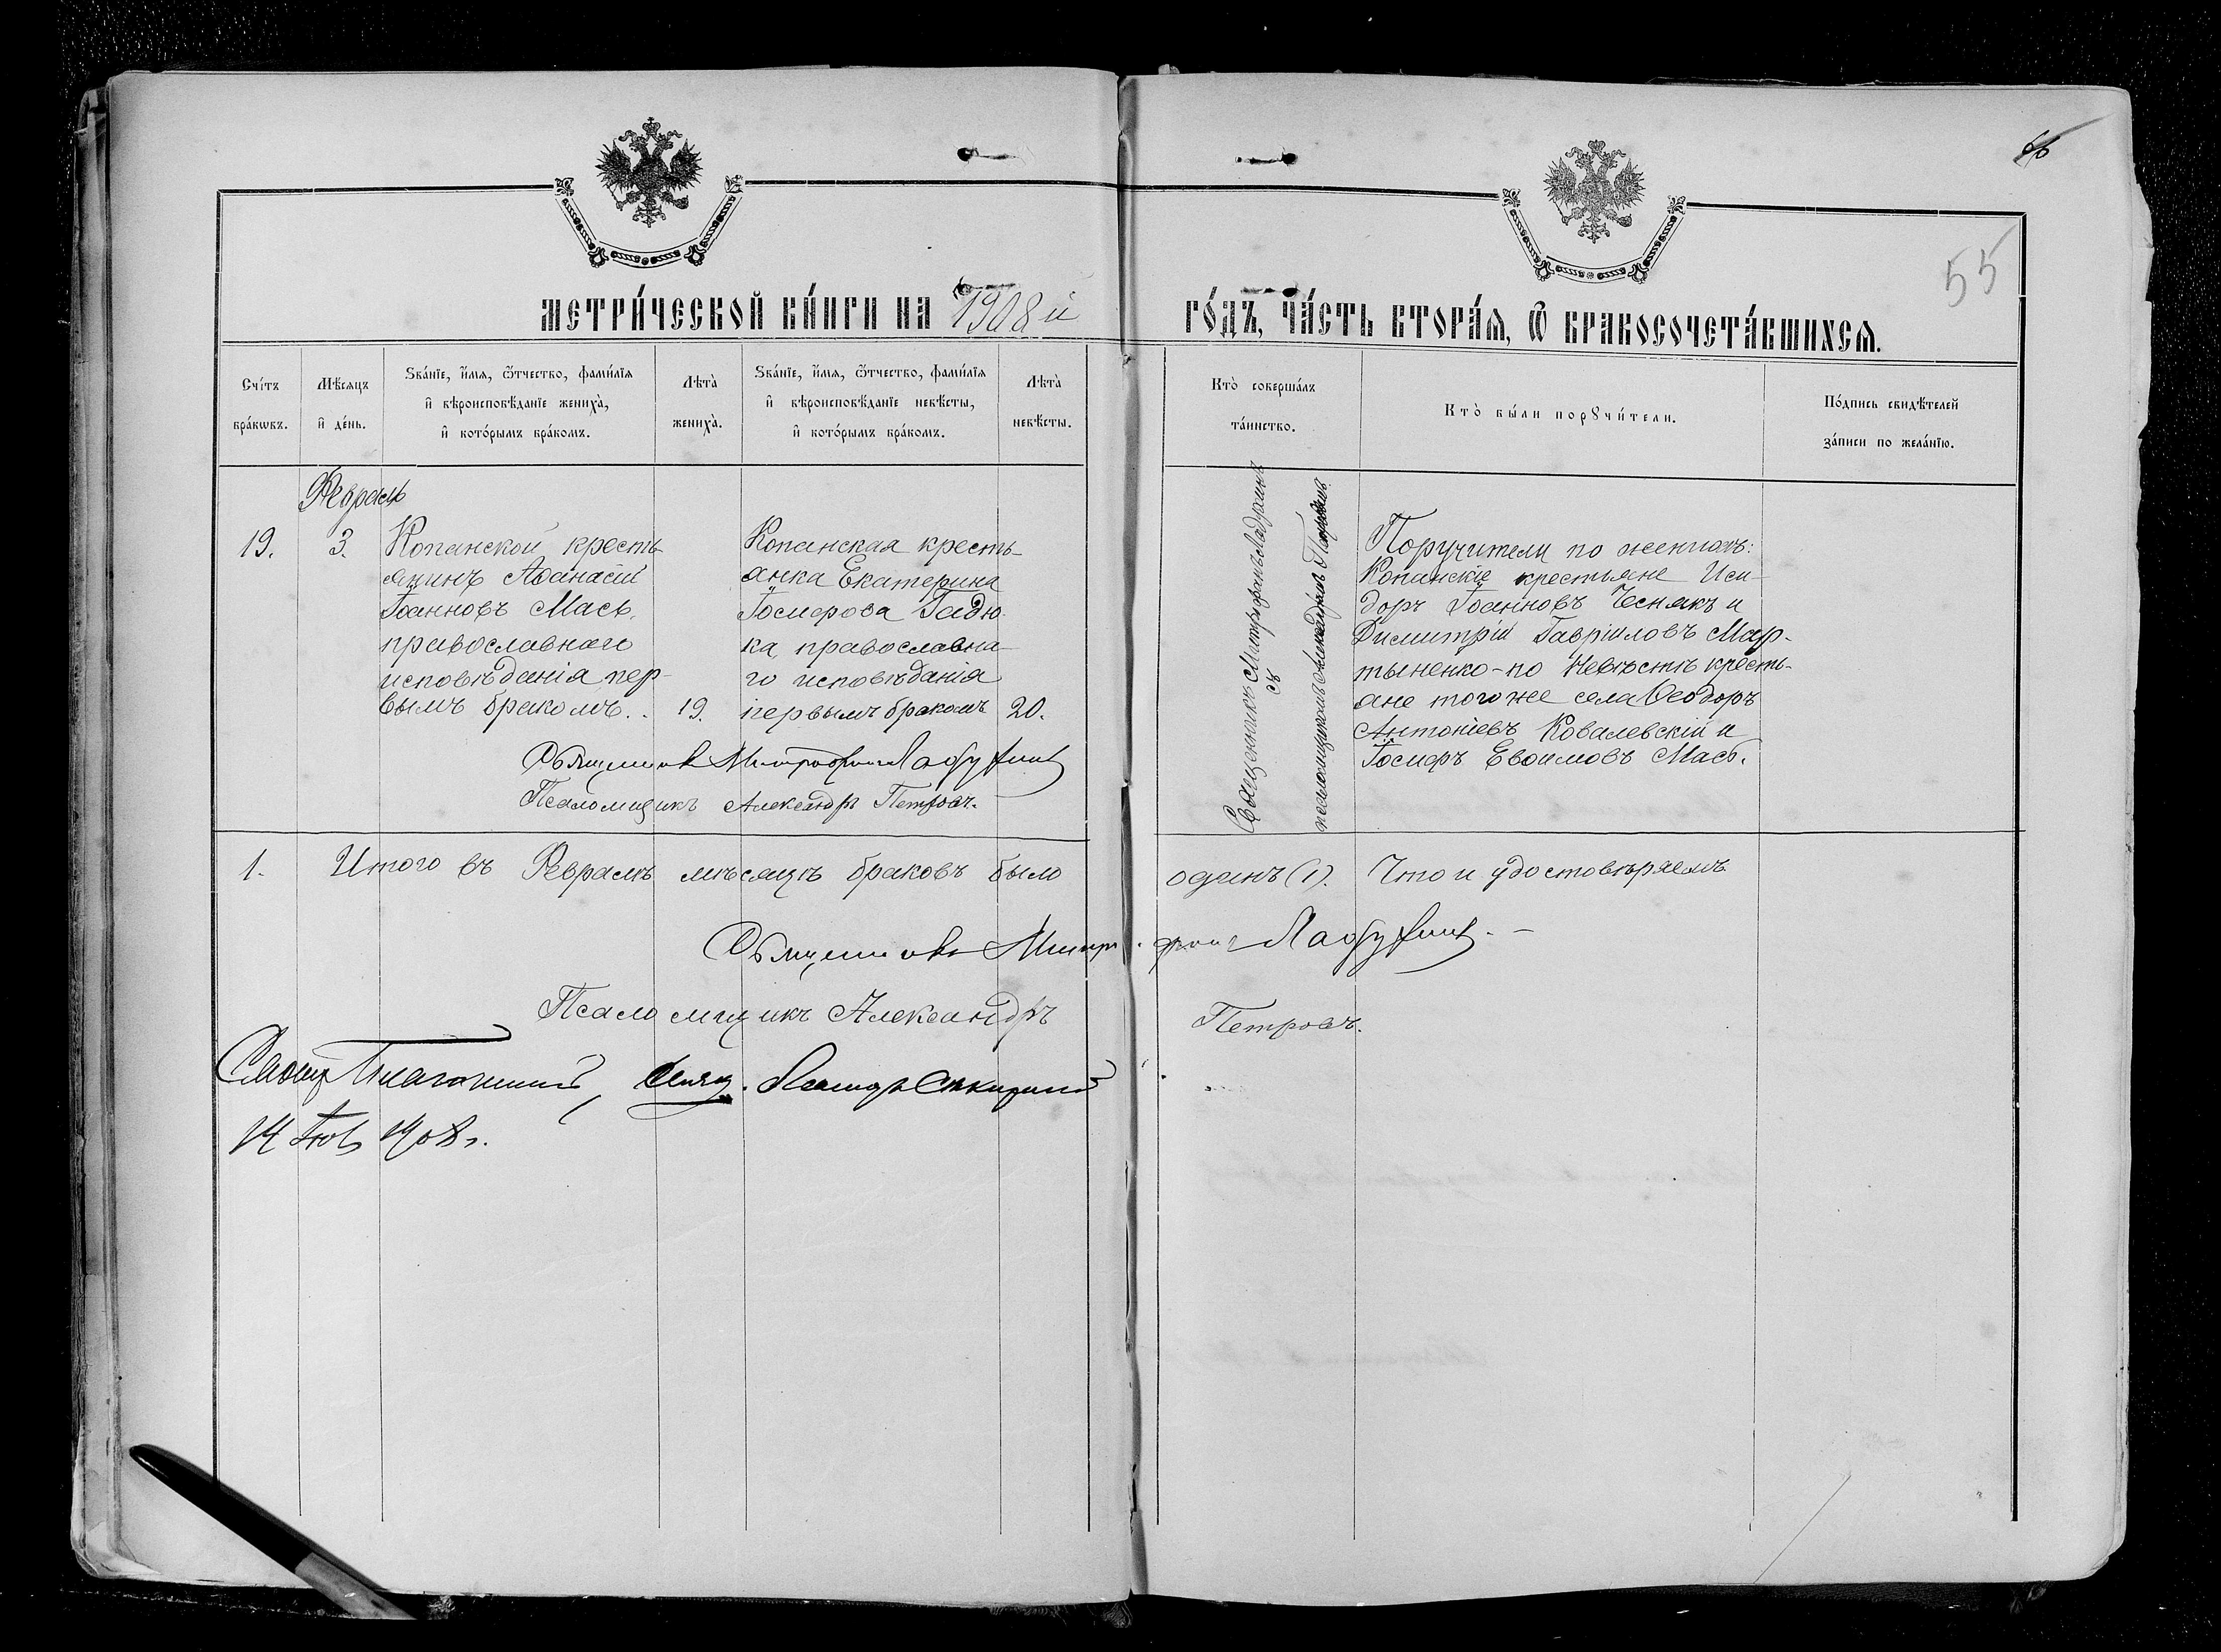 55
МЕТРИ́ЧЕСКОЙ КНИ́ГИ НА 1908 й ГО́ДЪ, ЧА́СТЬ ВТОРА́Я, Ѡ БРАКОСОЧЕТА́ВШИХСЯ.
Сче́тъ бра́кωвъ.
Мѣ́сяцъ и де́нь.
Зва́нїе, и́мя, ѻ́тчество, фами́лїя
и вѣроисповѣ́данїе жениха̀,
и кото́рымъ бра́комъ.
Лѣта̀ жениха̀.
Зва́нїе, и́мя, ѻ́тчество, фами́лїя
и вѣроисповѣ́данїе невѣ́сты,
и кото́рымъ бра́комъ.
Лѣта̀ невѣ́сты.
Кто̀ соверша́лъ
та́инство.
Кто̀ бы́ли порꙋчи́тели.
По́дпись свидѣ́телей
за́писи по жела́нїю.
Февраль
19.
3.
Копанской кресть-
янинъ Аѳанасій
Іоанновъ Мась,
православнаго
исповѣданія пер-
вымъ бракомъ.
19.
Копанская кресть-
янка Екатерина
Іосифова Гадю-
ка, православна-
го исповѣданія
первымъ бракомъ
20.
Священникъ Митрофанъ
съ
псаломщикомъ Александромъ
Поручители по женихѣ:
Копанскіе крестьяне Иси-
доръ Іоанновъ Чеснакъ и
Димитрій Гавріиловъ Мар-
тыненко - по Невѣстѣ кресть-
яне того же села Ѳеодоръ
Антоніевъ Ковалевскій и
Іосифъ Евѳимовъ Мась.
Священникъ Митрофанъ
Псаломщикъ Александръ Петровъ.
1. Итого въ Февралѣ мѣсяцѣ браковъ было одинъ (1). Что и удостовѣряемъ
Священникъ Митрофанъ
Псаломщикъ Александръ Петровъ.
Благочинный, Свящ.
1908 г.